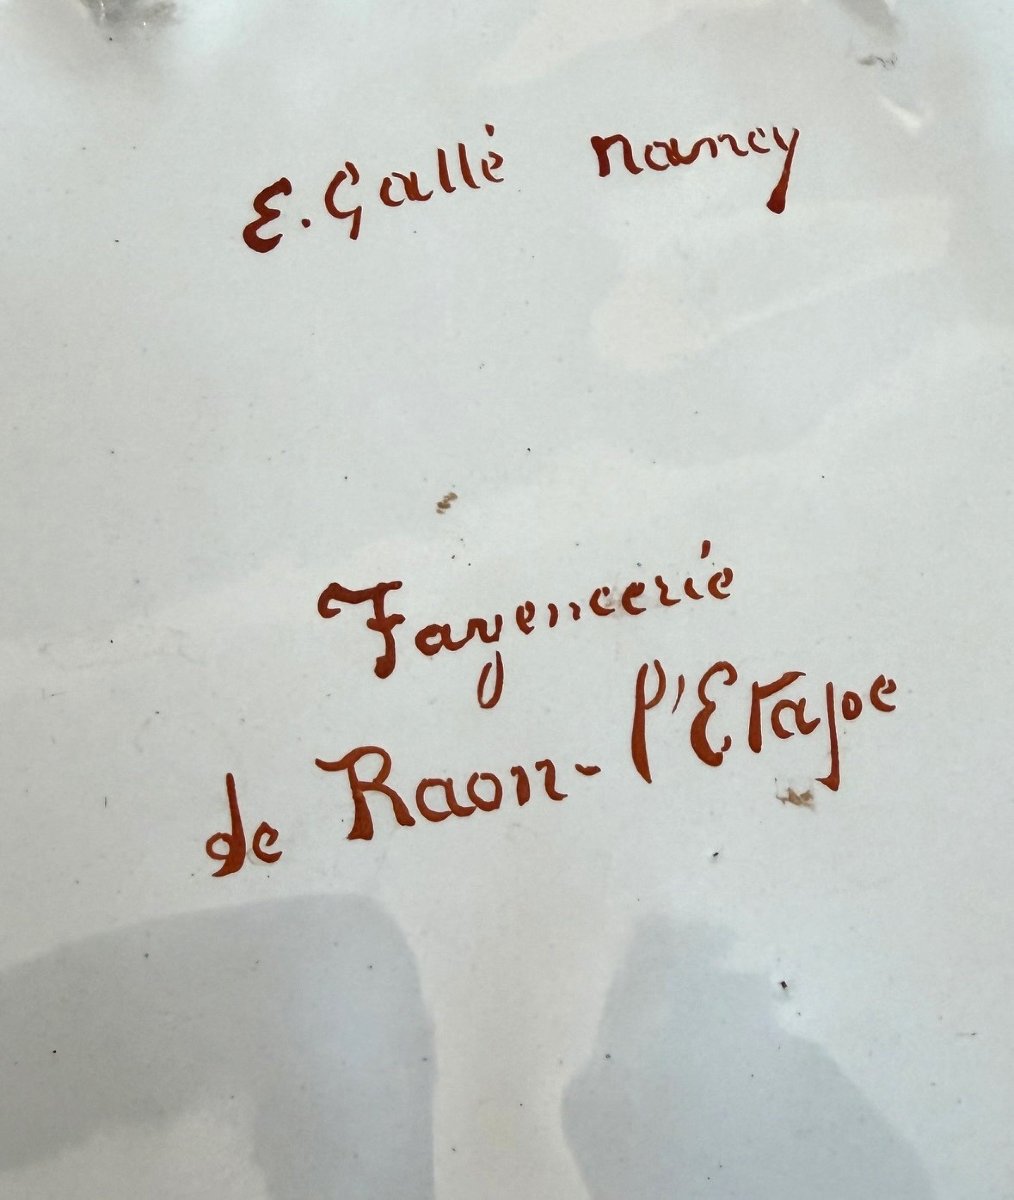 E. Gallé nancy
Fayencerie
de Raon-l'Etape